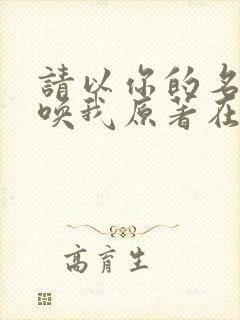 請以你的名
喚我原著在
高育生